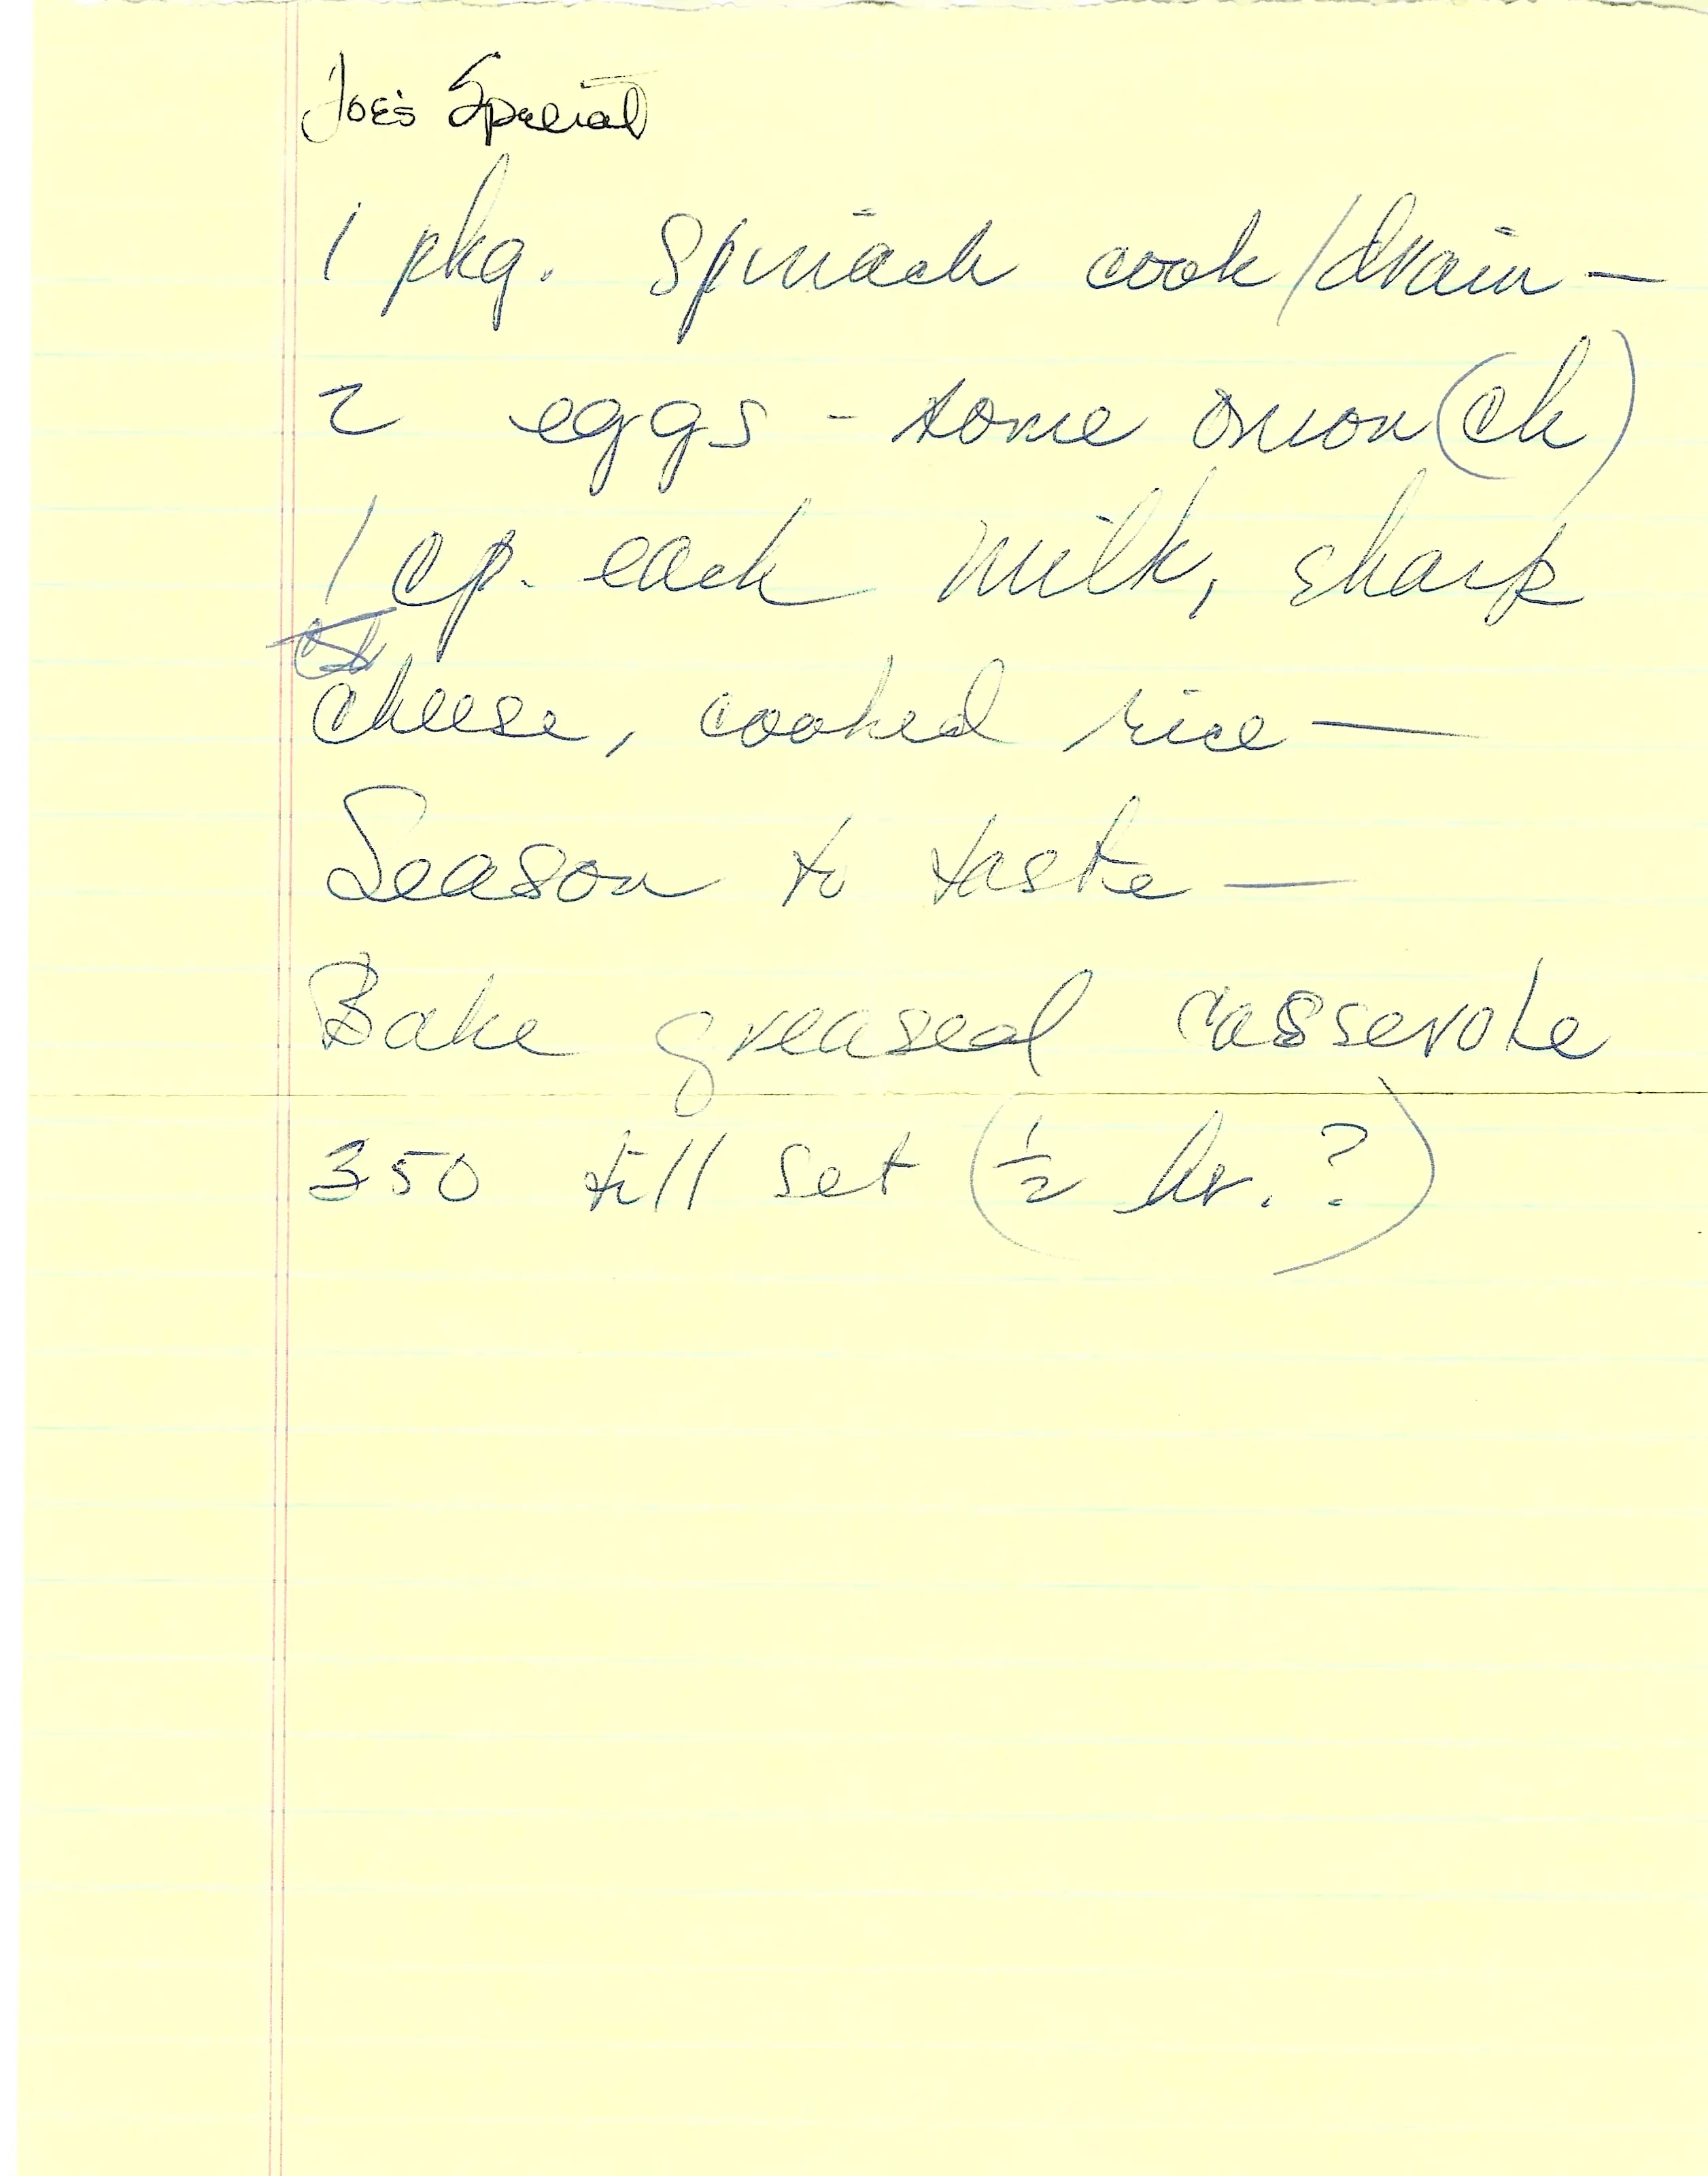 Joe's Special
1 pkg. Spinach cook/drain —
2 eggs - some onion (ch)
1 cp. each milk, sharp
cheese, cooked rice —
Season to taste —
Bake greased casserole
350 till set (½ hr.?)